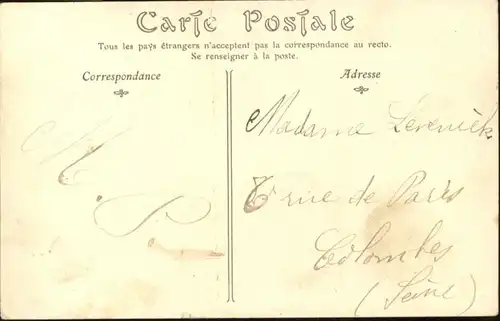 Carte Postale
Tous les pays étrangers n'acceptent pas la correspondance au recto.
Se renseigner à la poste.
Correspondance
Adresse
M.
P.
Madame
rue de Paris
Colombes
(Seine)